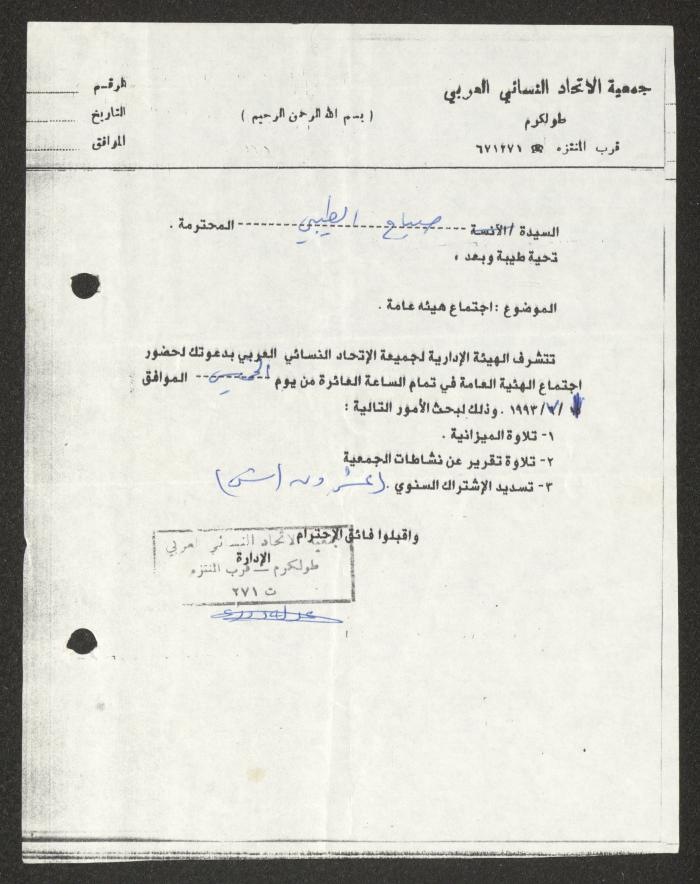 جمعية الاتحاد النسائي العربي
طولكرم
قرب المنتزه ☎ ٦٧١٢٧١
( بسم الله الرحمن الرحيم )
الرقم
التاريخ
الموافق
السيدة / الآنسة صباح الطيبي المحترمة .
تحية طيبة وبعد ،
الموضوع : اجتماع هيئه عامة .
تتشرف الهيئة الإدارية لجميعة الإتحاد النسائي العربي بدعوتك لحضور
اجتماع الهئية العامة في تمام الساعة العاثرة من يوم الخميس الموافق
/ /١٩٩٣ . وذلك لبحث الأمور التالية :
١- تلاوة الميزانية .
٢- تلاوة تقرير عن نشاطات الجمعية
٣- تسديد الإشتراك السنوي . (عشرون شيكل)
واقبلوا فائق الإحترام
الإدارة
جمعية الاتحاد النسائي العربي
طولكرم — قرب المنتزه
ت ٢٧١